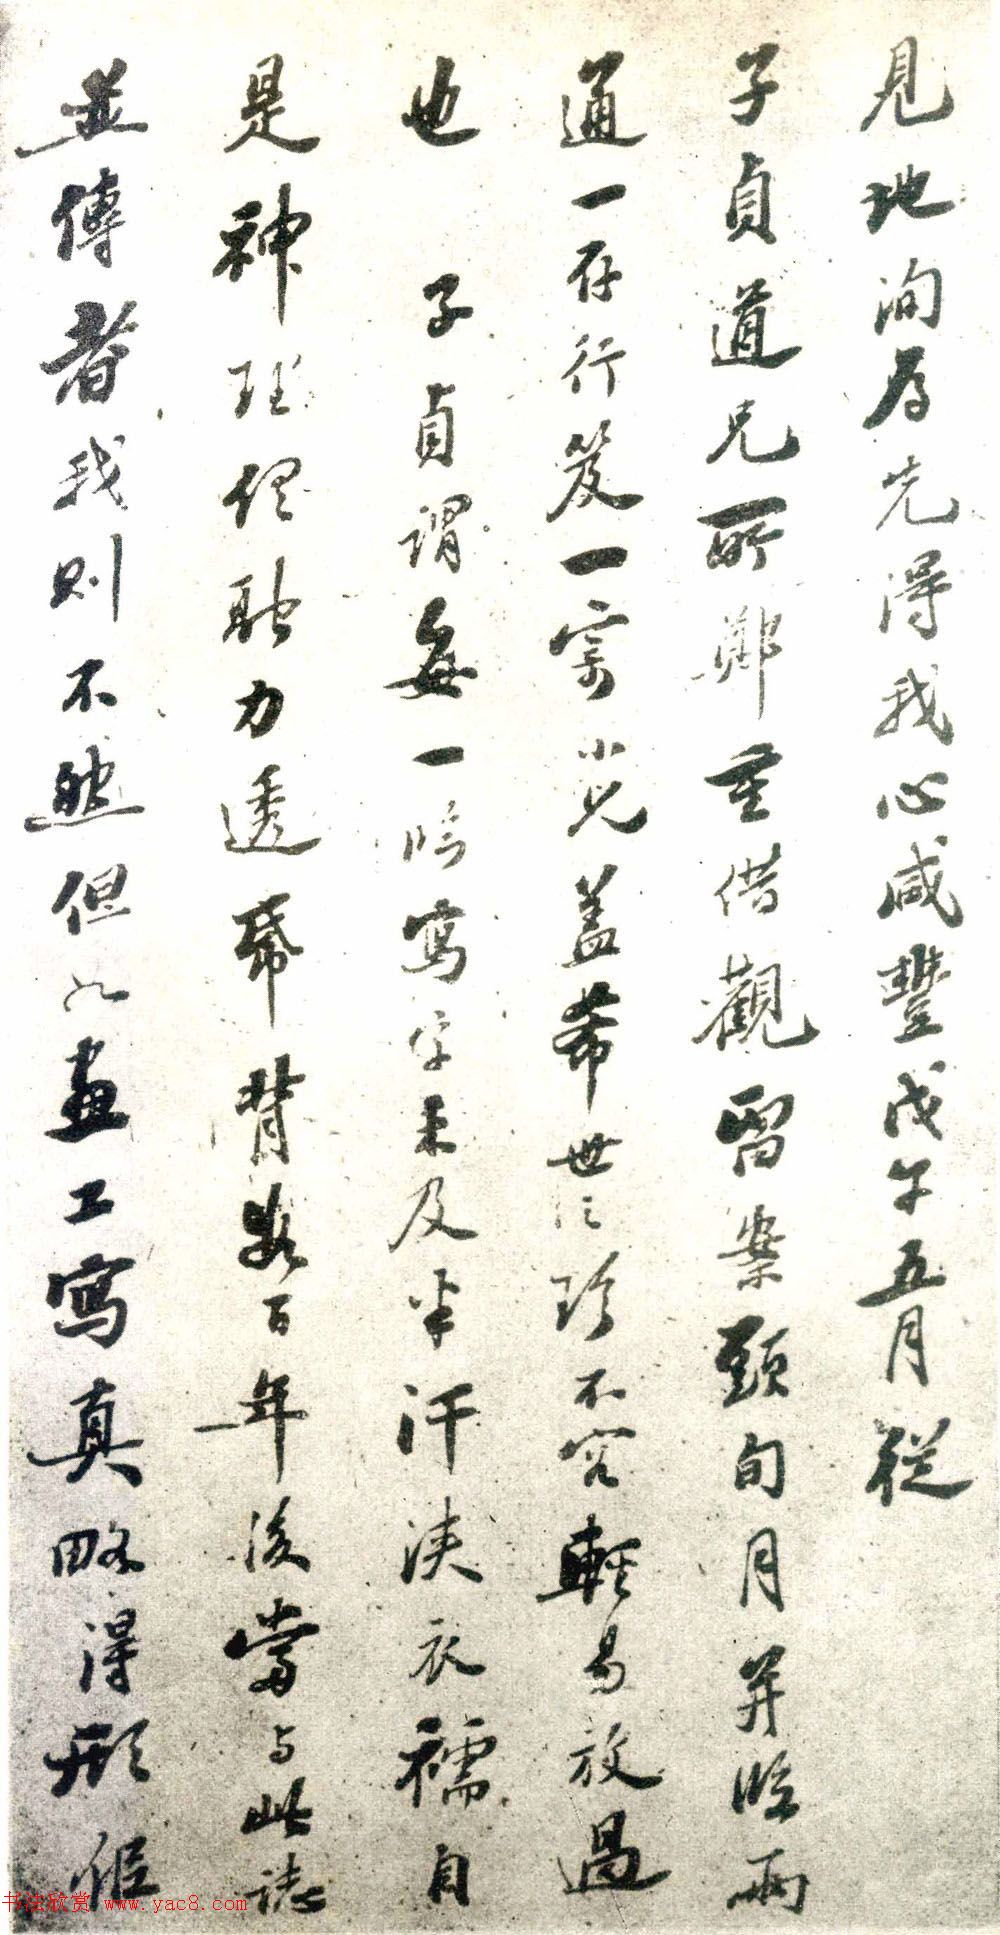 見地洵為先得我心咸豐戊午五月從
子貞道兄所鄭重借觀留案頭旬月并臨兩
通一存行笈一寄小兒蓋希世之珍不容輕易放過
也子貞謂每一臨寫字未及半汗浹衣襦自
是神理俱融力透紙背數百年後當與此誌
並傳者我則不然但如畫工寫真略得形
书法欣赏 www.yac8.com